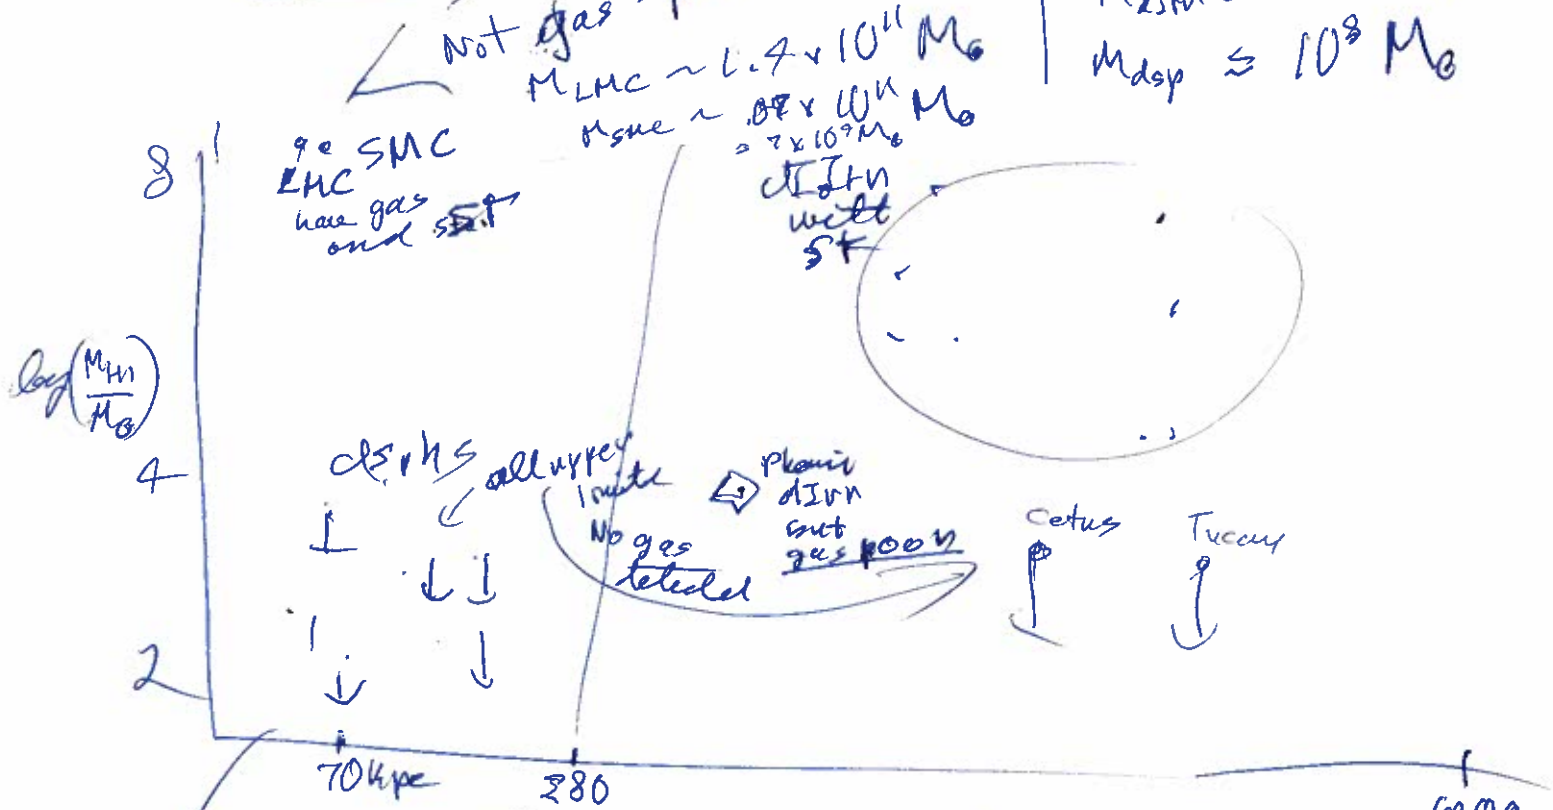 Not gas
M_LMC ~ 1.4 x 10^11 M_⊙
M_SMC ~ .07 x 10^11 M_⊙
= 7 x 10^9 M_⊙
M_dsp ≲ 10^8 M_⊙
8
SMC
LMC
have gas
and SF
dIrr
with
SF
log(M_HI/M_⊙)
4
dSphs
all upper
limits
No gas
detected
dIrr
but
gas poor
Cetus
Tucan
2
70 kpc
280